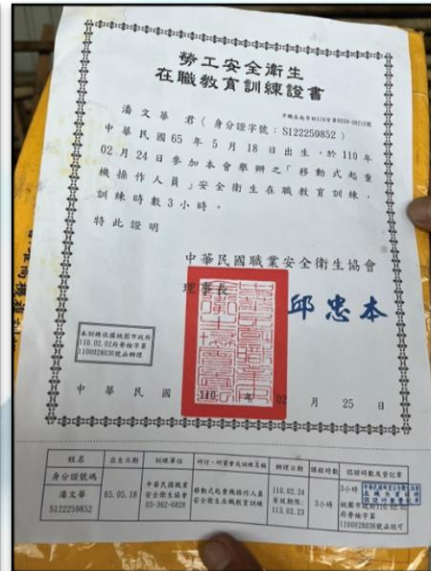 勞工安全衛生
在職教育訓練證書
潘文華 君(身分證字號:S122259852)
中華民國65年5月18日出生,於110年
02月24日參加本會舉辦之「移動式起重
機操作人員」安全衛生在職教育訓練,
訓練時數3小時。
特此證明
中華民國職業安全衛生協會
理事長 邱忠本
本訓練依據桃園市政府
110.02.02府勞檢字第
1100028036號函辦理
中華民國 110 年 02 月 25 日
姓名 出生日期 訓練單位 辦理日期 課程時數 認證時數及登記章
身分證號碼
潘文華
S122259852
65.05.18
中華民國職業
安全衛生協會
03-362-6828
移動式起重機操作人員
安全衛生在職教育訓練
110.02.24
有效期限:
113.02.23
3小時
3小時
桃園市政府110.02.02
府勞檢字第
1100028036號函認可